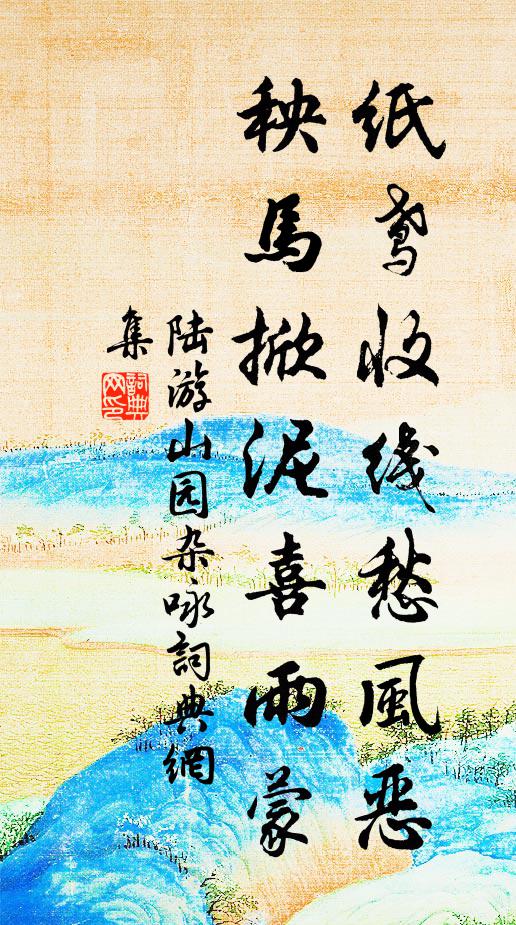 纸鸢收线愁風恶
秧馬掀泥喜雨蒙
陆游山园杂咏詞典網
集
詞典網印